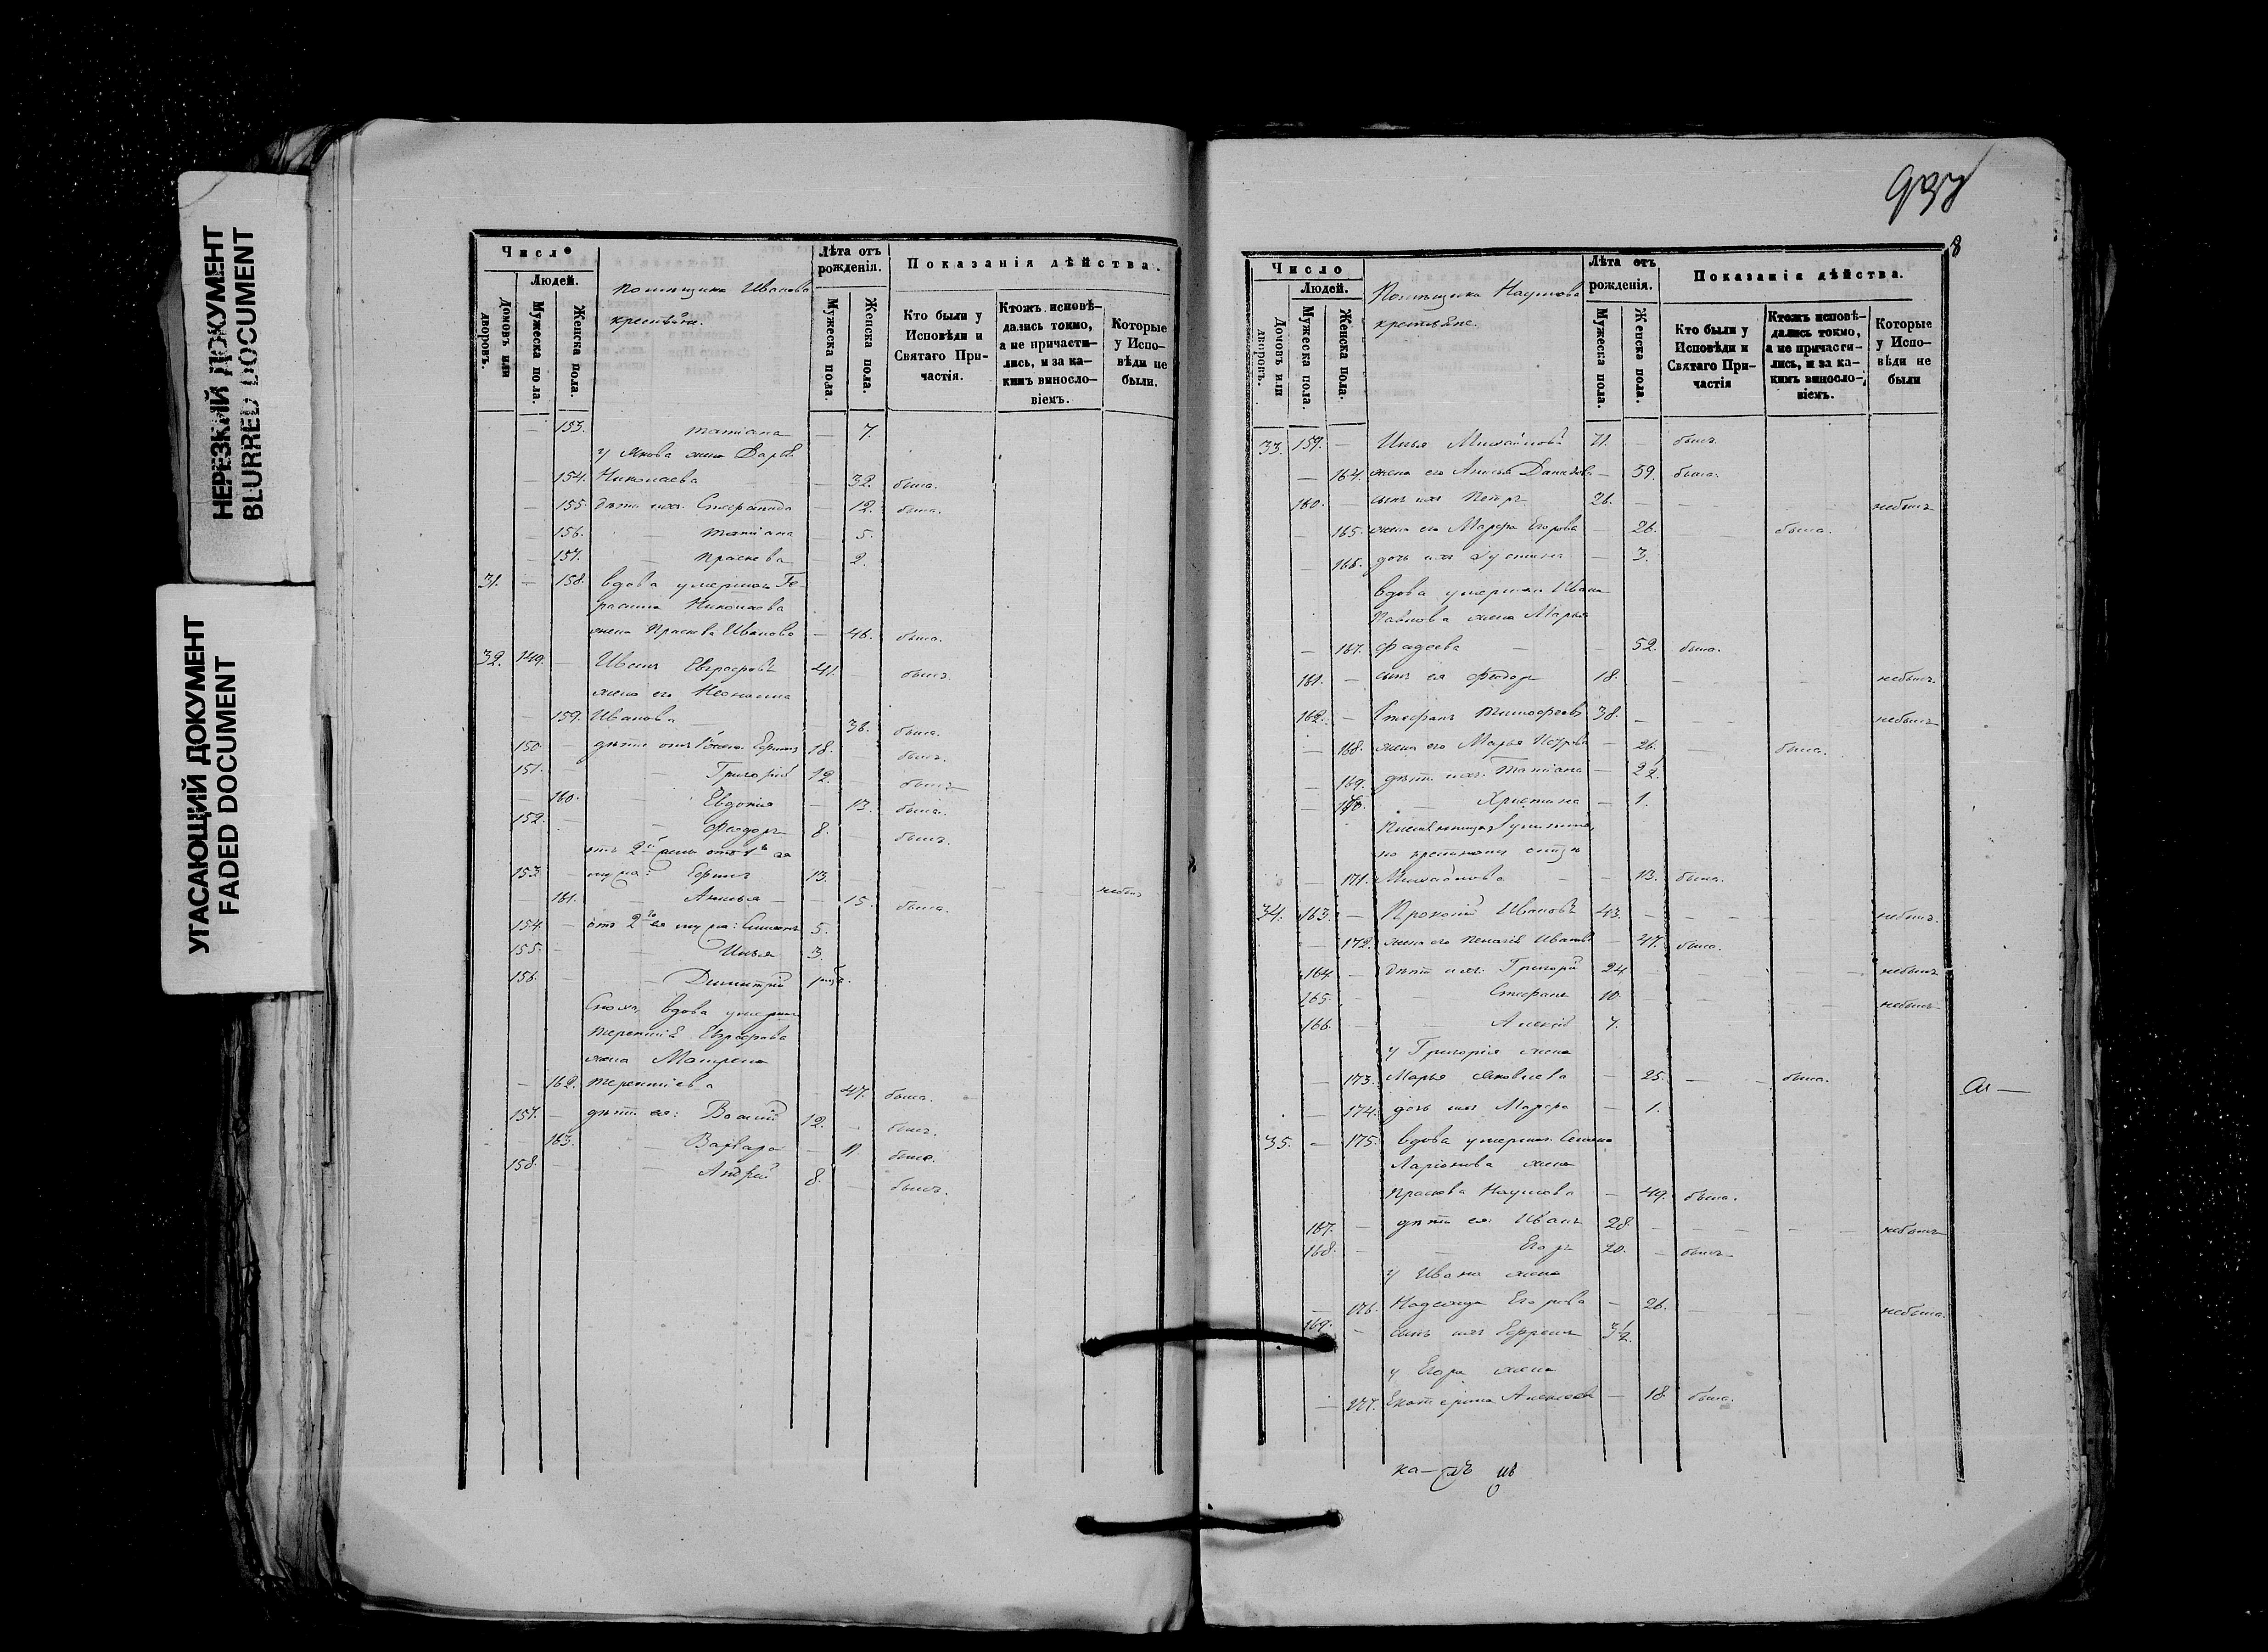 НЕРЕЗКИЙ ДОКУМЕНТ
BLURRED DOCUMENT
УГАСАЮЩИЙ ДОКУМЕНТ
FADED DOCUMENT
Число
Людей.
Домовъ или дворовъ.
Мужеска пола.
Женска пола.
Помѣщика Иванова
крестьяне.
Лѣта отъ рожденія.
Мужеска пола.
Женска пола.
Показанія дѣйства.
Кто были у Исповѣди и Святаго Причастія.
Ктожъ исповѣдались токмо, а не причастились, и за какимъ винословіемъ.
Которые у Исповѣди не были.
— 153. Татіана — 7.
у Якова жена
— 154. Николаева — 32. была.
— 155. дѣти ихъ: Стефанида — 12. была.
— 156. — Татіана — 5.
— 157. — Праскева — 2.
31. — 158. Вдова умершаго Ге-
расима Николаева
жена Праскева Иванова — 46. была.
32. 149. — Иванъ Евграфовъ 41. — былъ.
жена его
— 159. Иванова — 36. была.
150. — дѣти отъ 18. — былъ.
151. — — Григорій 12. — былъ
— 160. — Евдокія — 13. была.
152. — — Феодоръ 8. — былъ.
отъ 2й
153. — мужа: Ефимъ 13. — — — небылъ
— 161. — — 15. была.
154. — отъ 2го ея мужа: Симеонъ 5.
155. — — Илья 3.
156. — — Димитрій
вдова умерш
Терентія Евграфова
жена Матрена
— 162. Терентіева — 47. была.
157. — дѣти ея: Василій 12. — былъ.
— 163. — Варвара — 11. была.
158. — — Андрей 8. — былъ.
8
Число
Людей.
Домовъ или дворовъ.
Мужеска пола.
Женска пола.
Помѣщика Наумова
крестьяне.
Лѣта отъ рожденія.
Мужеска пола.
Женска пола.
Показанія дѣйства.
Кто были у Исповѣди и Святаго Причастія
Ктожъ исповѣдались токмо, а не причастились, и за какимъ винословіемъ.
Которые у Исповѣди не были
33. 159. — Илья Михайловъ 71. — былъ
— 164. жена его — 59. была.
160. — сынъ ихъ Петръ 26. — — — небылъ
— 165. жена его Марфа Егорова — 26. — — была.
— 166. дочь ихъ Іустина — 3.
Вдова умершаго Ивана
Павлова жена Марья
— 167. Фадеева — — 52. была.
161. — сынъ ея Феодоръ 18. — — — небылъ
162. — Стефанъ Тимофеевъ 38. — — небылъ
— 168. жена его Марья Петрова — 26. — была.
— 169. дѣти ихъ: Татіана —
— 170. — Христина — 1.
— 171. Михайлова — — 13. была.
34. 163. — Прокопій Ивановъ 43. — — — небылъ.
— 172. жена его Пелагія Иванова — 47. была.
164. — дѣти ихъ: Григорій 24 — — — небылъ
165. — — Стефанъ 10. — — — небылъ
166. — — Алексій 7.
у Григорія жена
— 173. Марья Яковлева — 25. — — была.
— 174. дочь ихъ Марфа — 1.
35. — 175. Вдова умершаго Семена
Ларіонова жена
Праскева Наумова — 49. была.
167. — дѣти ея: Иванъ 28. — — — небылъ
168. — — Егоръ 20. — былъ
у Ивана жена
— 176. Надежда Егорова — 26. — — небыла.
169. — сынъ ихъ Ефремъ 3½.
у Егора жена
— 177. Екатерина Алексеева — 18. была.